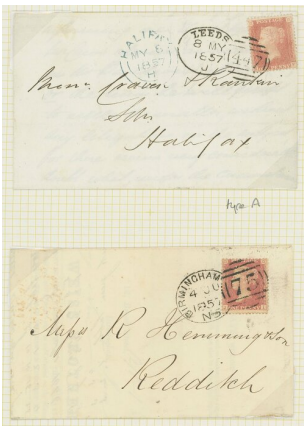 HALIFAX
MY 8
1857
H
LEEDS
8 MY
1857
J
447
Messrs Craven & Rankin
Halifax
type A
BIRMINGHAM
4 JU
1857
N S
75
Messrs R Hemming & Son
Redditch